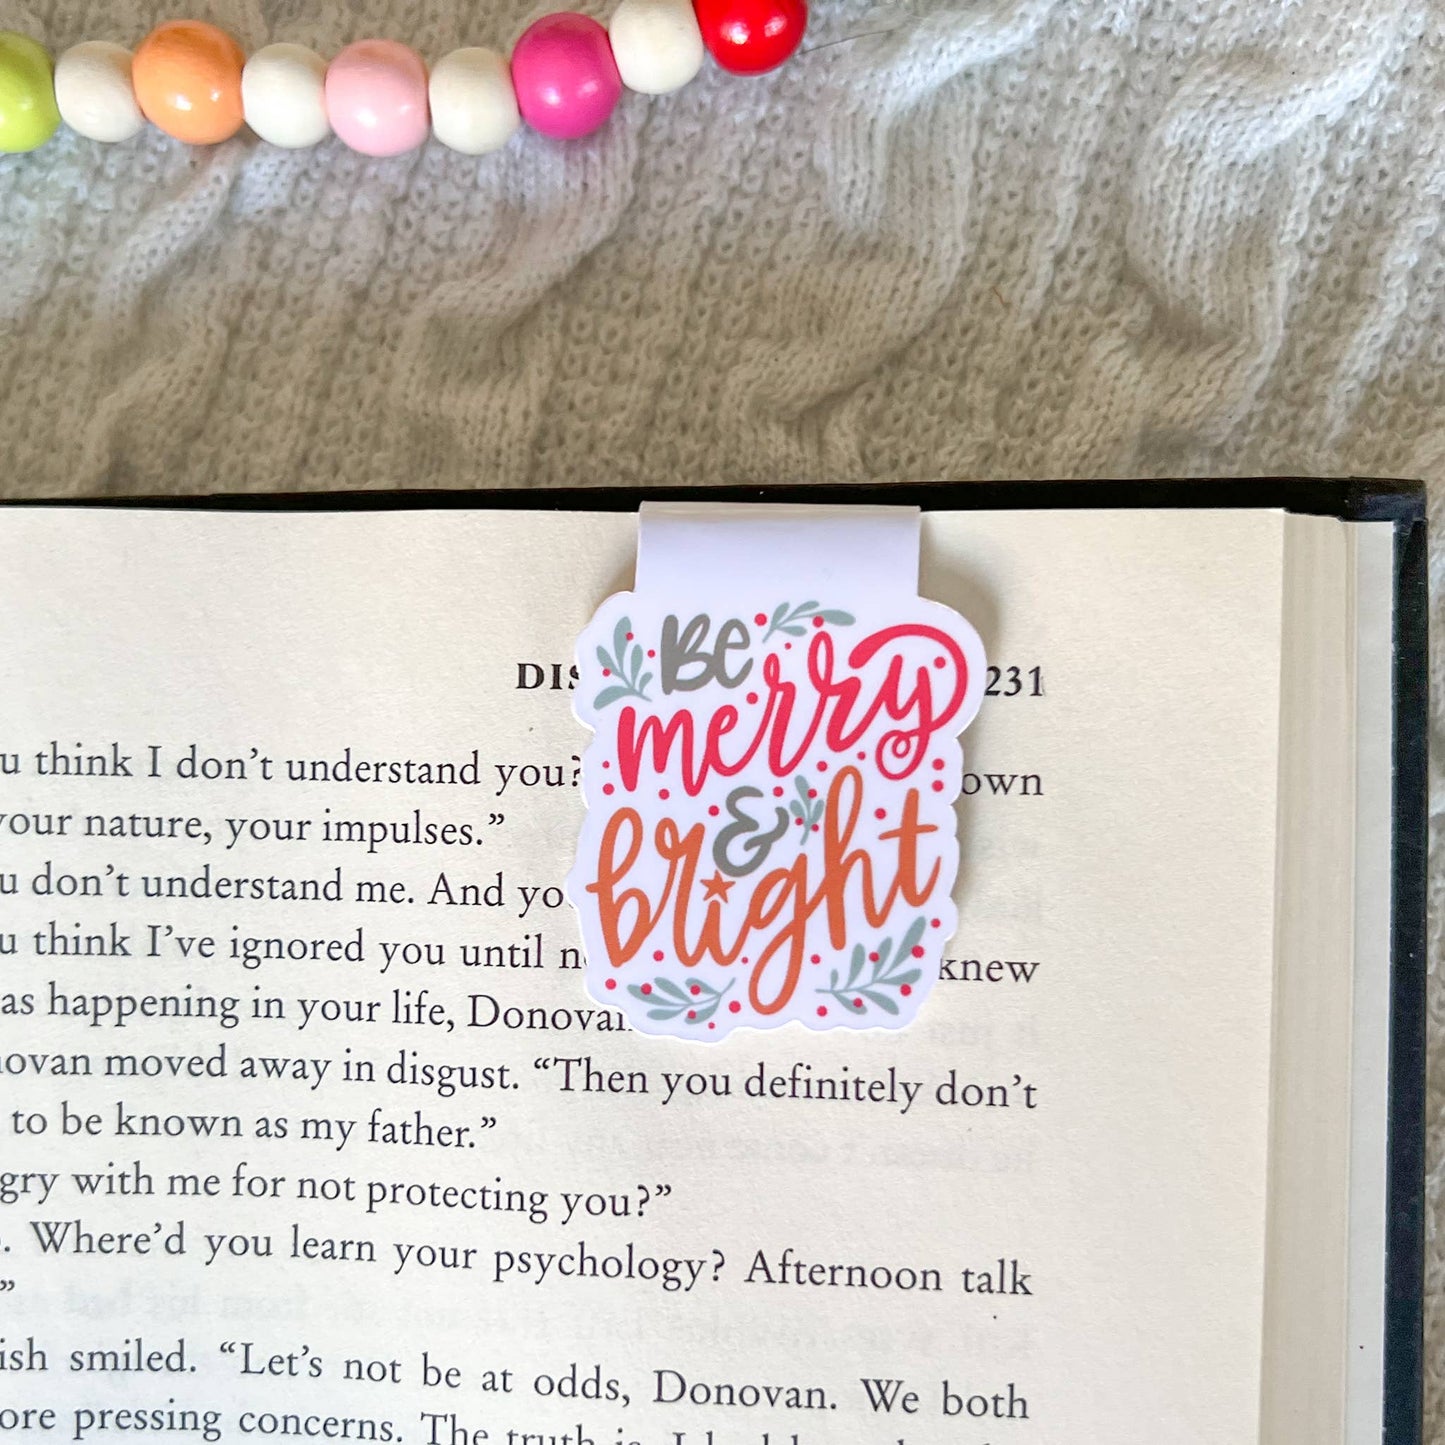 Be
merry
&
bright
231
u think I don’t understand you?
own
your nature, your impulses.”
u don’t understand me. And
u think I’ve ignored you until
knew
as happening in your life, Donovan
ovan moved away in disgust. “Then you definitely don’t
to be known as my father.”
gry with me for not protecting you?”
. Where’d you learn your psychology? Afternoon talk
”
ish smiled. “Let’s not be at odds, Donovan. We both
ore pressing concerns. The truth is, I